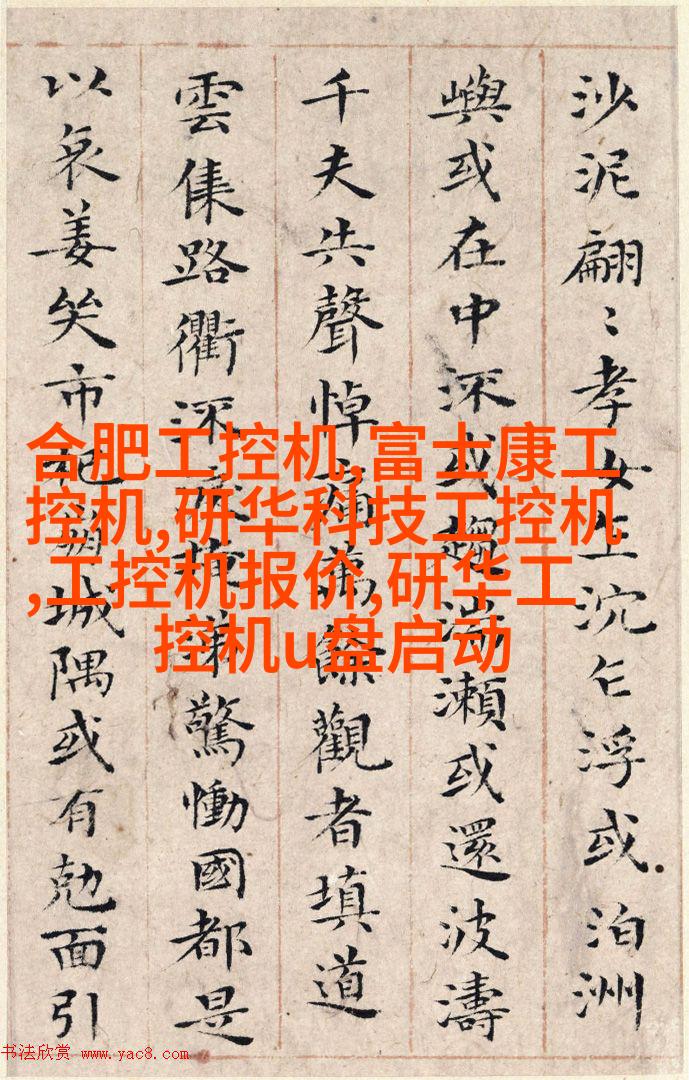 沙泥翩〻孝女乍沉乍浮或泊洲
嶼或在中流或趨湍瀬或還波濤
千夫共聲悼痛萬餘觀者填道
雲集路衢流淚掩涕驚慟國都是
以哀姜哭市杞崩城隅或有尅面引
合肥工控机,富士康工
控机,研华科技工控机
,工控机报价,研华工
控机u盘启动
书法欣赏 www.yac8.com